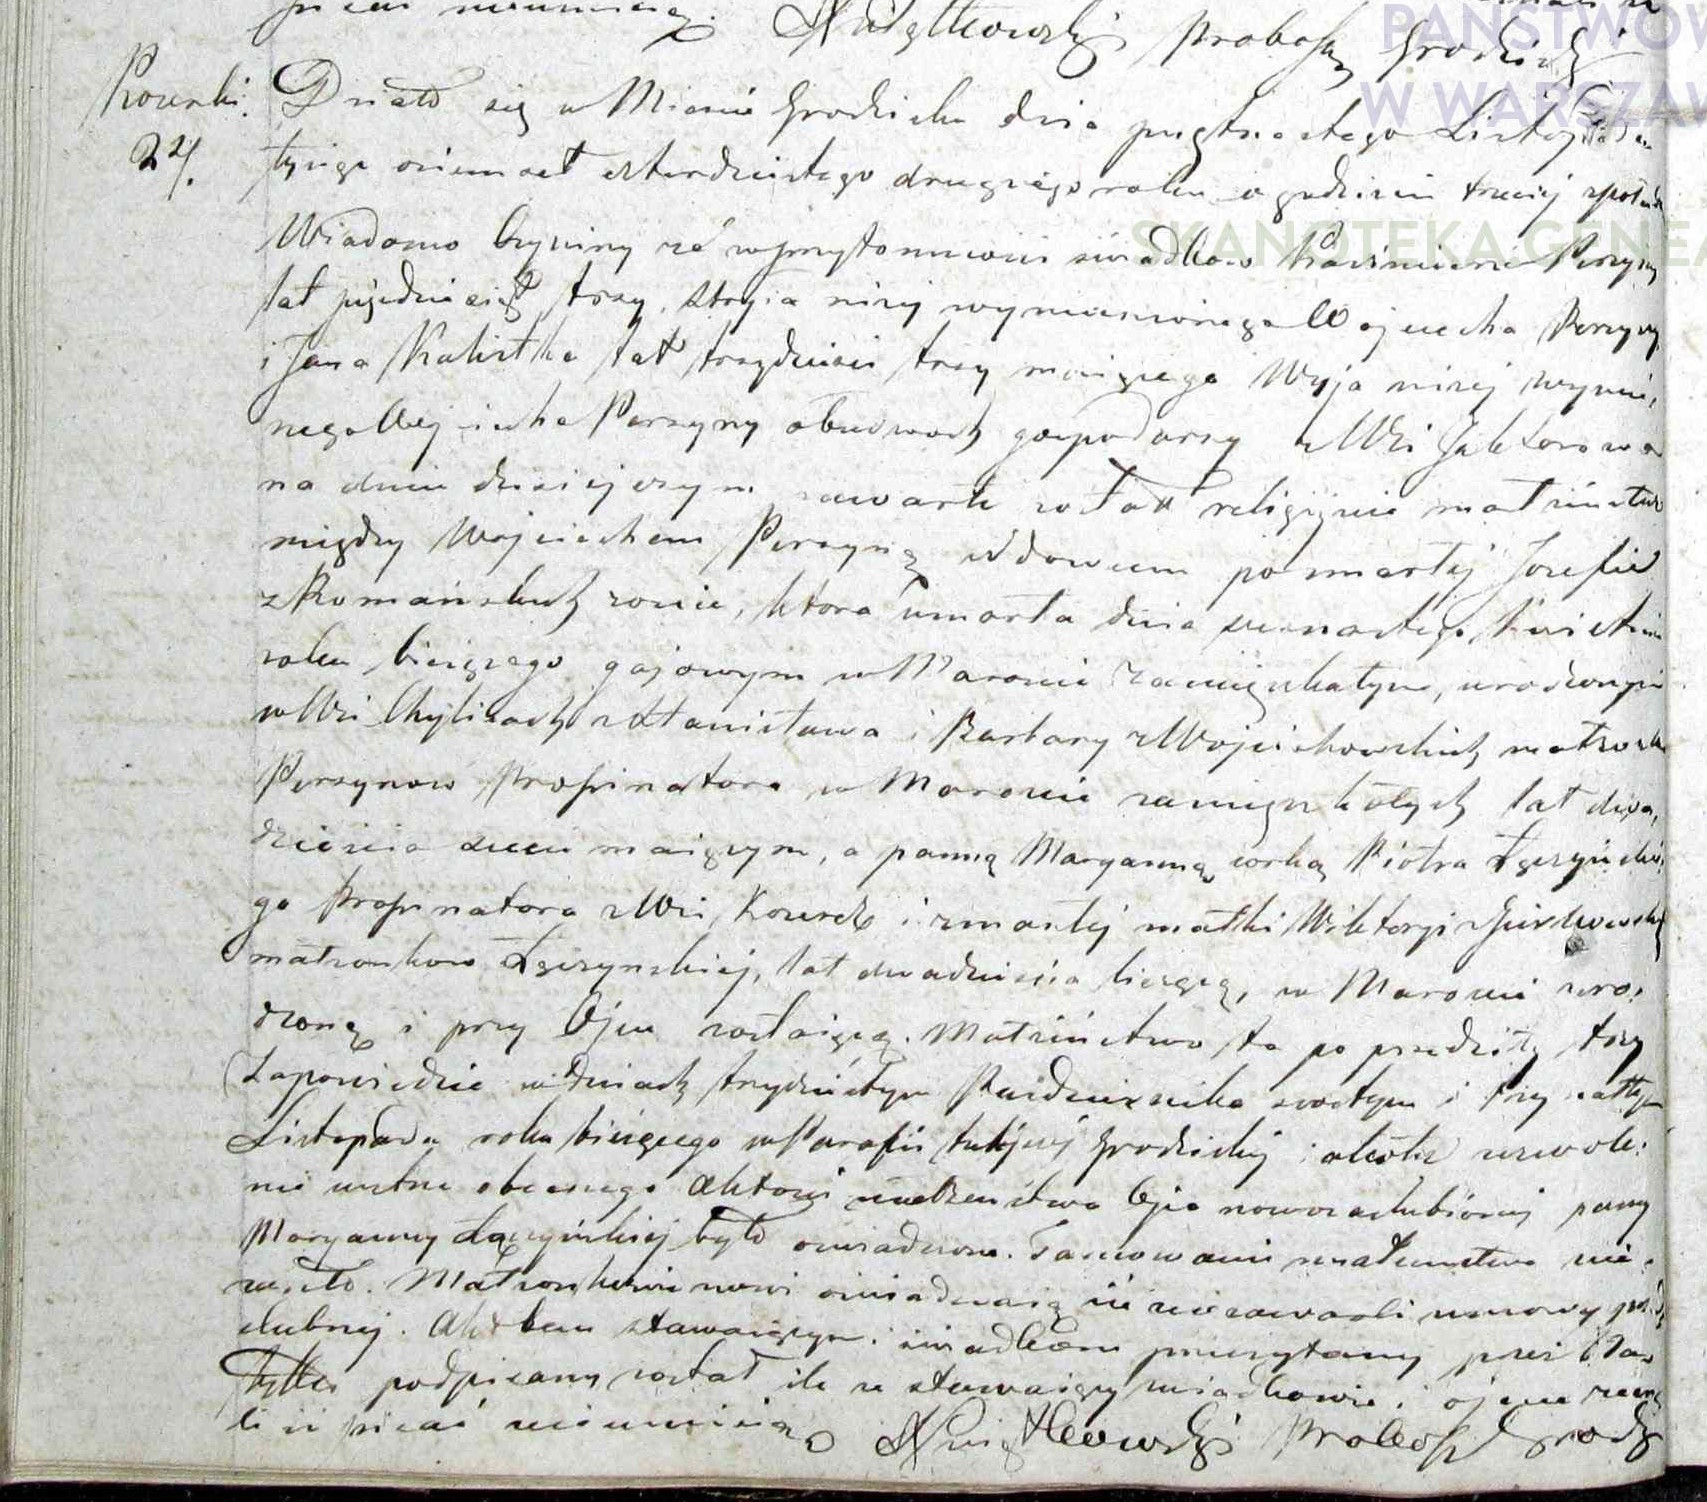 Kwiatkowski Proboszcz Grodziski
PAŃSTWOW
W WARSZAW
SKANOTEKA.GENEA
Kozerki.
24.
Działo się w Mieście Grodzisku dnia piętnastego Listopada
tysiąc ośmset czterdziestego drugiego roku o godzinie trzeciej z południa
Wiadomo czyniemy że w przytomności świadków Kazimierza Perzyny
lat pięćdziesiąt trzy, stryja niżej wymienionego Wojciecha Perzyny
i Jana Kalistka lat trzydzieści trzy maiącego Wuja niżej wymie,
nego Wojciecha Perzyny obudwóch gospodarzy z Wsi Jaktorowa
na dniu dzisiejszym zawarte zostało religijnie małżeństwo
między Wojciechem Perzyną wdowcem po zmarłej Jozefie
z Romańskich żonie, która umarła dnia Kwietnia
roku bieżącego gajowym w Maronie zamięszkałym, urodzonym
w Wsi Chylicach z Stanisława i Barbary z Wojciechowskich małżonków
Perzynow Propinatora w Maronie zamięszkałych lat dwa,
dzieścia maiącym, a panną Maryanną corką Piotra Łączyńskie,
go Propinatora z Wsi i zmarłej matki Wiktoryi z
małżonkow Łączynskiej, lat dwadzieścia liczącą, w Maronie uro,
dzoną i przy Ojcu zostaiącą. Małżeństwo to poprzedziły trzy
Zapowiedzie w dniach trzydziestym Października szostym i trzynastym
Listopada roku bieżącego w Parafii tutejszej Grodziskiej i zezwole,
nie ustne obecnego Aktowi małżeństwa Ojca nowozaślubionej panny
Maryanny Łączyńskiej było oświadczone. Tamowanie małżeństwa nie
zaszło. Małżonkowie nowi oświadczaią iż nie zawarli umowy przed,
ślubnej. Akt ten stawaiącym i świadkom przeczytany przez Nas
tylko podpisany został ile że stawaiący świadkowie i ojciec zezna
li iż pisać nieumieią
Kwiatkowski Proboszcz Grodz